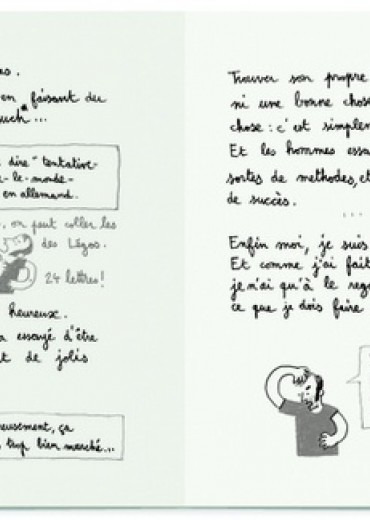 en faisant du
dire "tentative-
-le-monde-
en allemand.
on peut coller les
des Légos.
24 lettres!
heureux.
essayé d'être
de jolis
ça
trop bien marché...
Trouver son propre
ni une bonne chose
chose : c'est simplem
Et les hommes essa
sortes de méthodes, et
de succès.
...
Enfin moi, je suis
Et comme j'ai fait
je n'ai qu'à le rega
ce que je dois faire